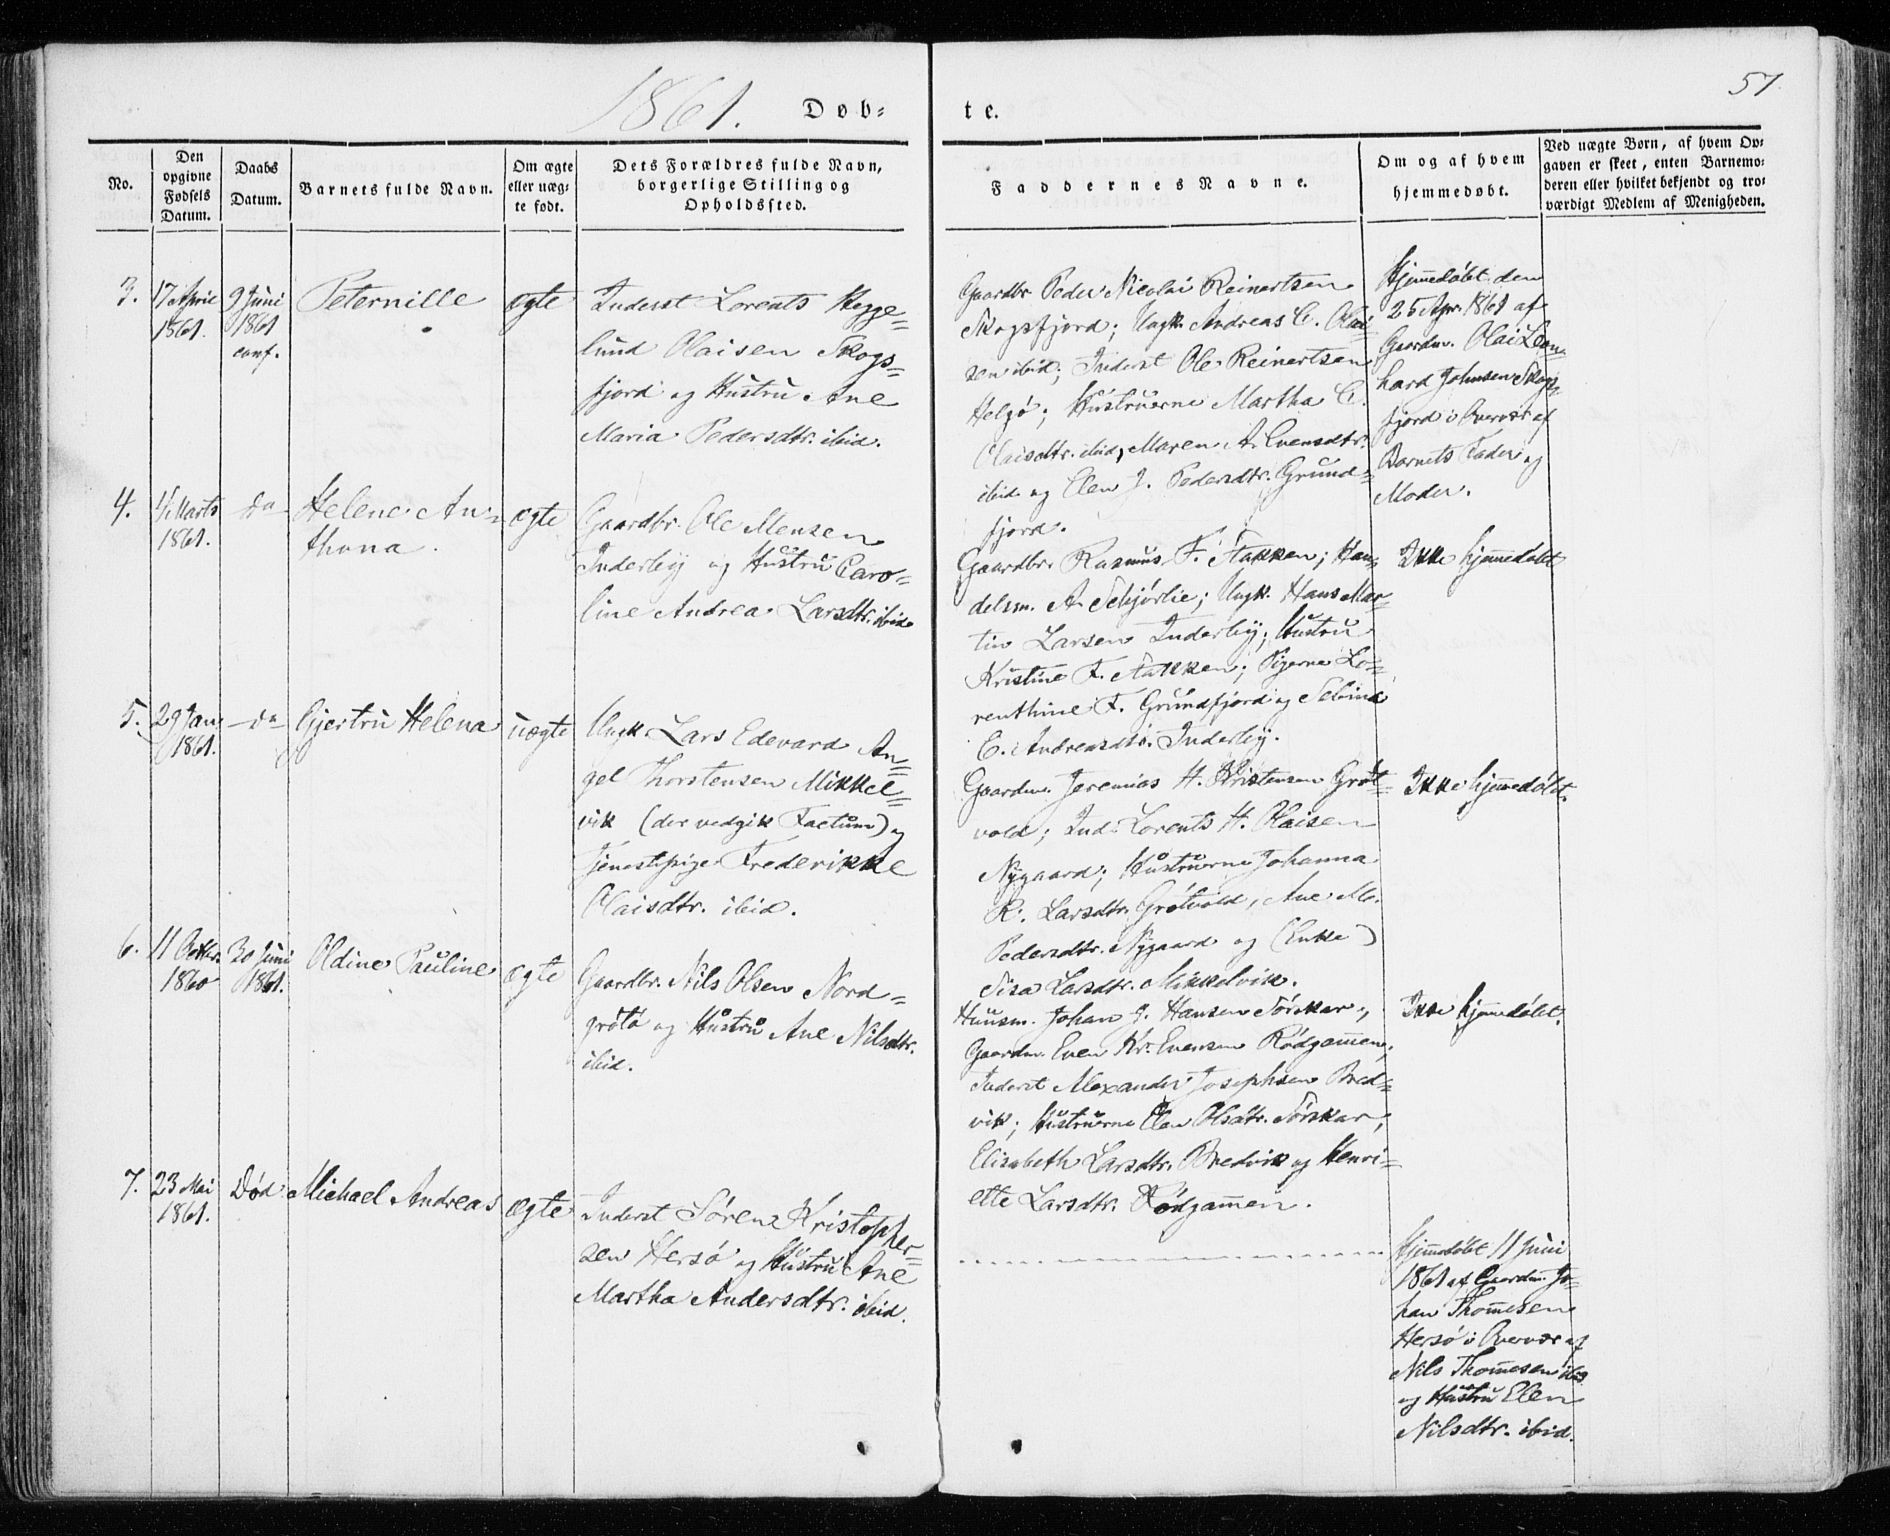 1861.
Døb-
te.
57.
No.
Den
opgivne
Fødsels
Datum.
Daabs
Datum.
Barnets fulde Navn.
Om ægte
eller uæg-
te født.
Dets Forældres fulde Navn,
borgerlige Stilling og
Opholdssted.
Faddernes Navne.
Om og af hvem
hjemmedøbt.
Ved uægte Børn, af hvem Op-
gaven er skeet, enten Barnemo-
deren eller hvilket bekjendt og tro-
værdigt Medlem af Menigheden.
3.
17 April
1861.
9 Juni
1861
conf.
Peternille
ægte
Inderst Lorents Hegge-
lund Olaisen Skogs-
fjord og Hustru Ane
Maria Pedersdtr. ibid.
Gaardbr Peder Nicolai Reinertsen
Skogsfjord; Ungk. Andreas C. Olai-
sen ibid; Inderst Ole Reinertsen
Helgø; Hustruerne Martha C.
Olaisdtr. ibid, Maren A. Evensdtr.
ibid og Elen J. Pedersdtr. Grund-
fjord.
Hjemmedøbt den
25 Apr. 1861 af
Gaardm. Olai Leon-
hard Johnsen Skogs-
fjord i Overvær af
Barnets Fader og
Moder.
4.
Marts
1861.
do
Helene An-
thona.
ægte
Gaardbr. Ole Mensen
Inderby og Hustru Caro-
line Andrea Larsdtr. ibid
Gaardbr. Rasmus F. Stakken; Han-
delsm. A. Schjørlie; Ungk. Hans Mar-
tin Larsen Inderby; Hustru
Kristine F. Stakken; Pigerne Lo-
renthine F. Grundfjord og
E. Andreasdtr. Inderby.
Ikke hjemmedøbt
5.
29 Jan
1861.
do
Gjertru Helena
uægte
Ungk. Lars Edevard An-
gel Thorstensen Mikkel-
vik (der vedgik Factum) og
Tjenestepige Frederikke
Olaisdtr. ibid.
Gaardm. Jeremias H. Kristensen Grøt-
vold; Ind. Lorents H. Olaisen
Nygaard; Hustruerne Johanna
R. Larsdtr. Grøtvold, Ane M.
Pedersdtr. Nygaard og (Enke)
Sisa Larsdtr. Mikkelvik.
Ikke hjemmedøbt.
6.
11 Octbr.
1860
30 Juni
1861.
Oldine Pauline
ægte
Gaardbr. Nils Olsen Nord-
grøtø og Hustru Ane Nilsdtr.
ibid.
Huusm. Johan J. Hansen Sørskar;
Gaardm. Even Kr. Evensen Rødgammen;
Inderst Alexander Josephsen Bred-
vik; Hustruerne Elen Olsdtr. Sørskar,
Elisabeth Larsdtr. Bredvik og Henri-
ette Larsdtr. Rødgammen.
Ikke hjemmedøbt.
7.
23 Mai
1861.
Død
Michael Andreas
ægte
Inderst Søren Kristopher-
sen Hersø og Hustru Ane
Martha Andersdtr. ibid.
Hjemmedøbt 11 Juni
1861 af Gaardm. Jo-
han Thommesen
Hersø i Overvær af
Nils Thommesen ibid
og Hustru Elen
Nilsdtr. ibid.